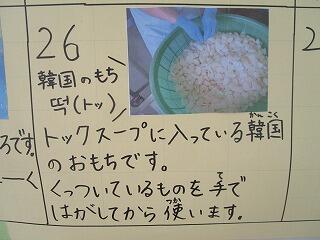 26
韓国のもち
떡(トッ)
トックスープに入っている韓国
のおもちです。
くっついているものを手で
はがしてから使います。
ろです。
2